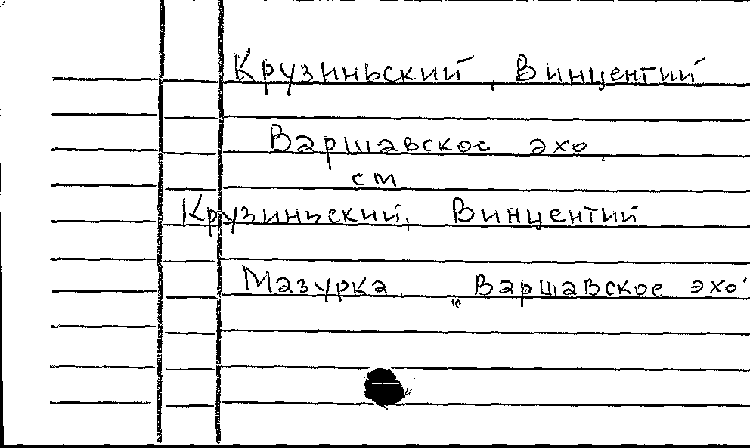 Крузиньский, Винцентий
Варшавское эхо
см
Крузиньский, Винцентий
Мазурка „Варшавское эхо"